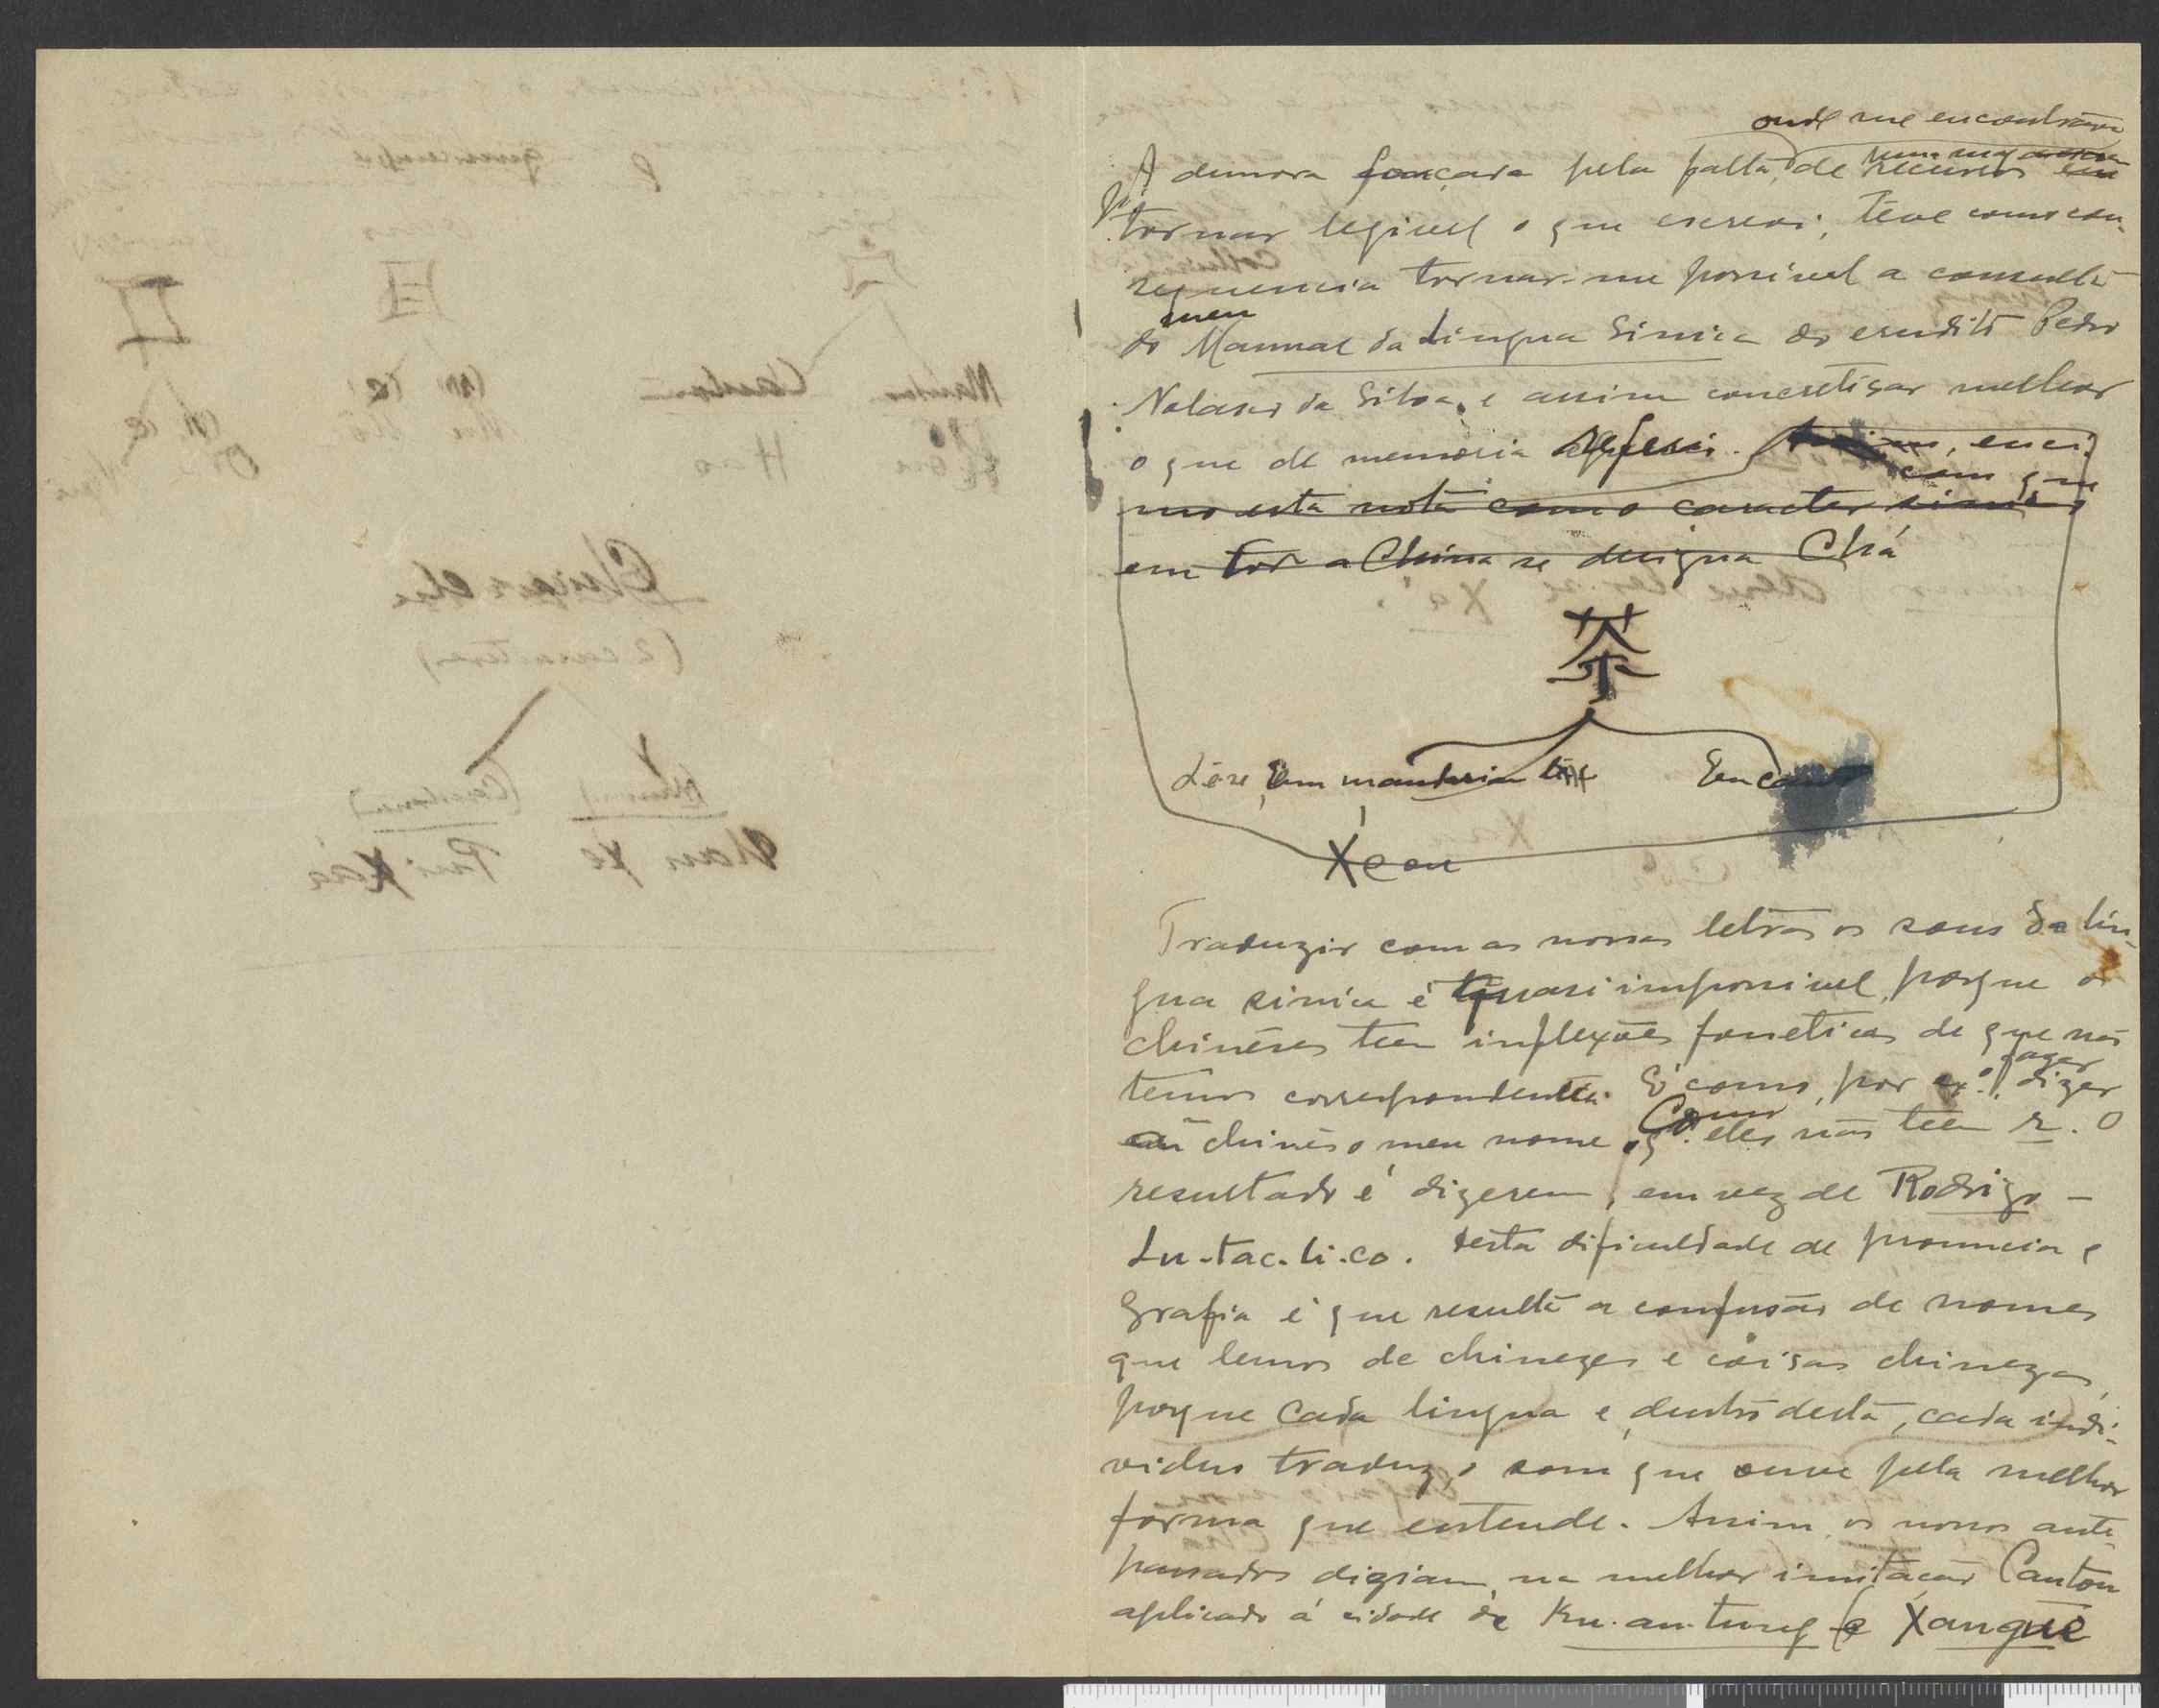 onde me encontrava
A demora forçada pela falta de recursos em
pª tornar legivel o que escrevi, teve como con-
sequencia tornar-me possivel a consulta
do meu Manual da Lingua Sinica do erudito Pedro
Nolasco da Silva, e assim concretisar melhor
o que de memoria referi. enci-
mo esta nota com o caracter sinico com que
em toda a China se designa Chá
茶
Lê-se, em mandarim Em
Xe ou
Traduzir com as nossas letras os sons da lin-
gua sinica é quasi impossivel, porque os
chinêses teem inflexões foneticas de que não
temos correspondentes. É como, por ex.º, fazer dizer
em chinês o meu nome. Como eles não teem r. O
resultado é dizerem, em vez de Rodrigo —
Lu-tac-li-co. Desta dificuldade de pronuncia e
grafia é que resulta a confusão de nomes
que lemos de chinezes e coisas chinezas,
porque cada lingua e, dentro desta, cada indi-
viduo traduz o som que ouve pela melhor
forma que entende. Assim, os nossos ante-
passados diziam, na melhor imitação Canton
aplicado á cidade de Ku-an-tung e Xangue